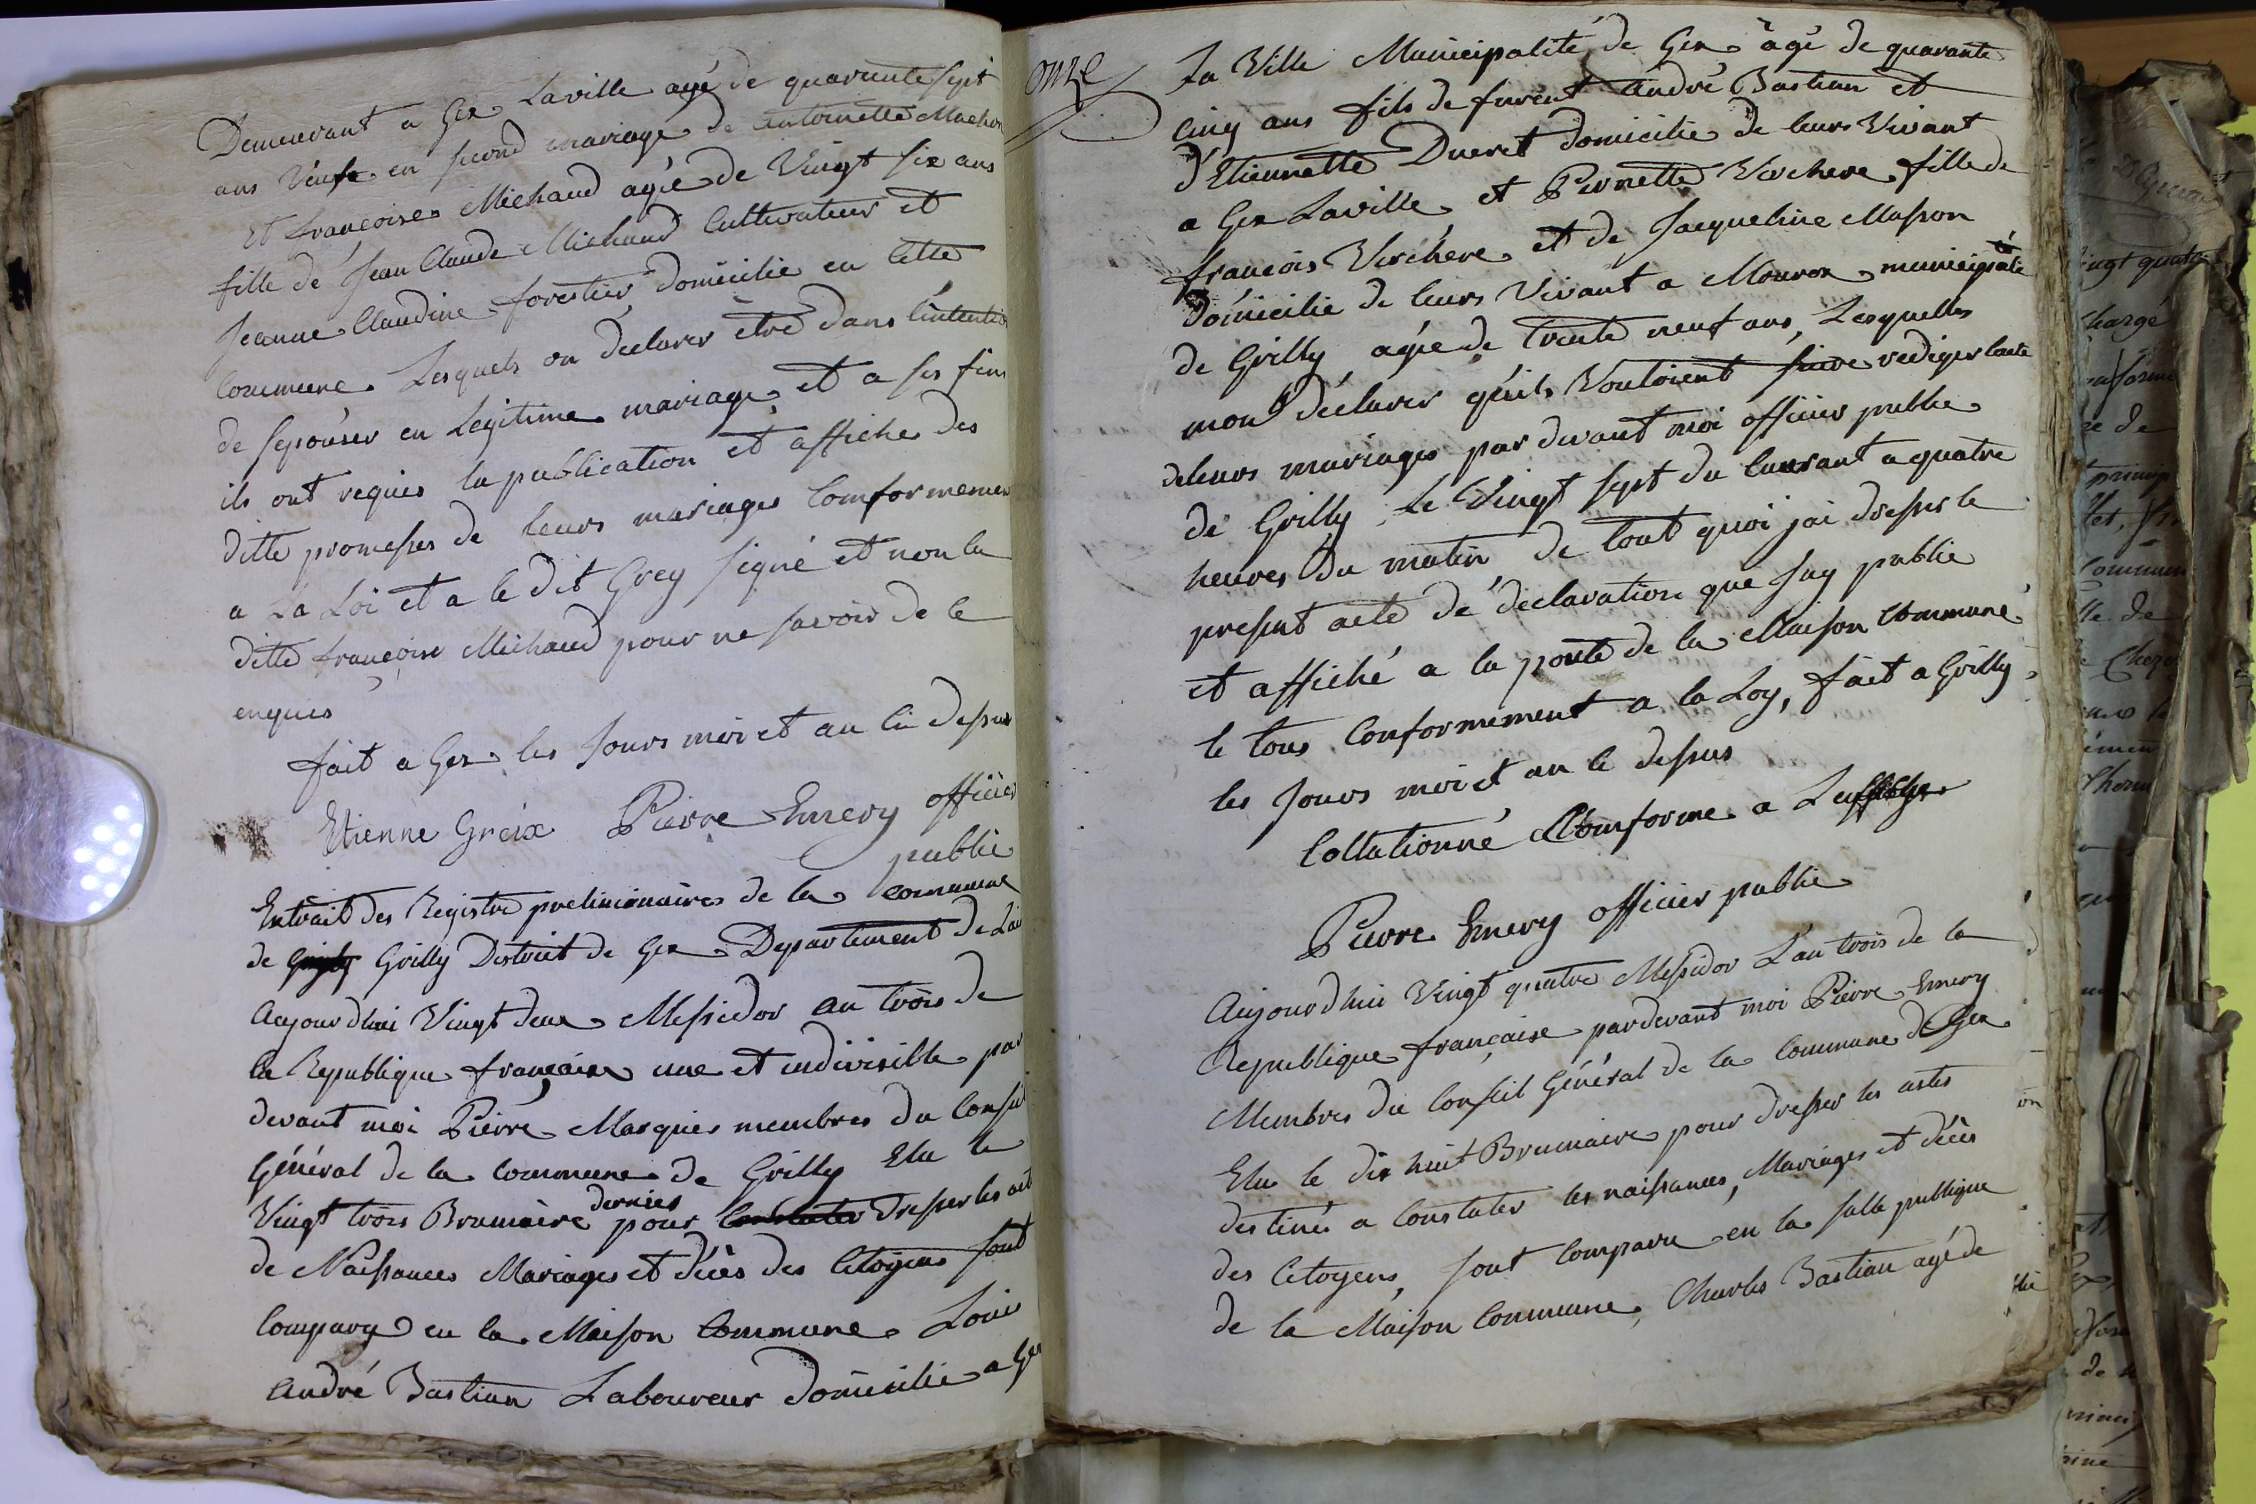 Demeurant a Gex Laville agé de quarante sept
ans Veufe en second mariage de antoinette Machon
Et francoise Michaud agée de Vingt six ans
fille de Jean Claude Michaud Cultivateur et
Jeanne Claudine forestier domicilie en Cette
Commune Lesquels on declarer être dans l'intention
de sepouser en Legitime mariage et a ses fins
ils ont requis la publication et affiche des
ditte promesses de leurs mariages Comformemen
a La Loi et a le dit Grey signé et non la
ditte françoise Michaud pour ne savoir de ce
enques
fait a Gex les Jours moi et an ci dessus
Etienne Greix Pierre Emery officier
public
Extrait des Registre preliminaires de la commune
de Grilly District de Gex Departement de Lain
Aujourdhui Vingt deux Messidor an trois de
la Republique française une et indivisible par
devant moi Pierre Marquis membres du Conseil
Général de la Commune de Grilly Elu le
Vingt trois Brumaire dernier pour dresser les act
de Naissances Mariages et décès des Citoyens sont
Compary en la Maison Commune Loui
André Bastian Laboureur domicilie a Gex
onze
La Ville Municipalité de Gex âgé de quarante
cinq ans fils de furent André Bastian et
d'Etiennette Dueret domicilie de leurs Vivant
a Gex Laville et Pernette Verchere fille de
francois Verchere et de Jacqueline Masson
domicilie de leurs Vivant a Mourex municipalité
de Grilly agée de trente neuf ans, Lesquelles
mon déclarer qu'ils Vouloient faire rediger lacte
de leurs mariages par devant moi officier public
de Grilly Le Vingt sept du Courant a quatre
heures du matin de tout quoi jai dresser le
present acte de declaration que Jay publie
et affiché a la porte de la Maison Commune
le tous Conformement a la Loy, fait a Grilly
les Jours moi et an ci dessus
Collationné Comforme a Laffiche
Pierre Emery officier public
Aujourdhui Vingt quatre Messidor L'an trois de la
Republique française pardevant moi Pierre Emery
Membres du Conseil Général de la Commune de Gex
Elu le dix huit Brumaire pour dresser les actes
destinés a Constater les naissances, Mariages et décès
des Citoyens, sont Comparu en la salle publique
de la Maison Commune, Charles Bastian agé de